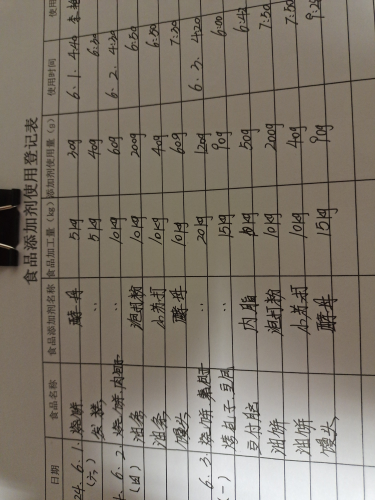 食品添加剂使用登记表
日期 食品名称 食品添加剂名称 食品加工量（kg） 添加剂使用量（g） 使用时间 使用
24. 6. 1. 烧饼 酵母 5kg 30g 6. 1. 4:40
(六) 发糕 ： 5kg 40g 6:30
6. 2. 烧饼 ： 10kg 60g 6. 2. 4:30
(日) 油条 泡打粉 10kg 200g 6:50
油条 小苏打 10kg 40g 6:50
馒头 酵母 10kg 60g 7:30
6. 3. 烧饼 ： 20kg 120g 6. 3. 4:20
(一) ： 15kg 90g 6:00
内脂 50g 6:42
油饼 泡打粉 10kg 200g 7:50
油饼 小苏打 10kg 40g 7:50
馒头 酵母 15kg 90g